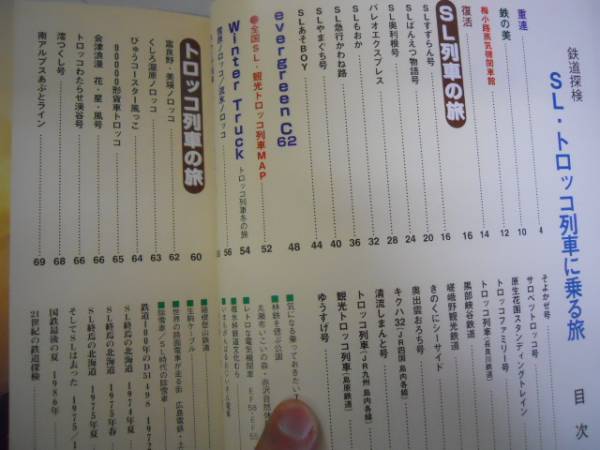 鉄道探検
SL・トロッコ列車に乗る旅
目次
重連 4
鉄の美 10
梅小路蒸気機関車館 12
復活 14
SL列車の旅 16
SLすずらん号 16
SLばんえつ物語号 20
SL奥利根号 24
パレオエクスプレス 28
SLもおか 32
SL急行かわね路 36
SLやまぐち号 40
SLあそBOY 44
evergreen C62 48
全国SL・観光トロッコ列車MAP 52
Winter Truck トロッコ列車冬の旅 54
流氷ノロッコ 56
トロッコ列車の旅 60
富良野・美瑛ノロッコ 60
くしろ湿原ノロッコ 62
びゅうコースター風っこ 63
80000形貨車トロッコ 64
会津浪漫 花・星・風号 65
トロッコわたらせ渓谷号 66
澪つくし号 68
南アルプスあぷとライン 69
そよかぜ号
サロベツトロッコ号
原生花園スタンディングトレイン
トロッコファミリー号
トロッコ列車(長良川鉄道)
黒部峡谷鉄道
嵯峨野観光鉄道
きのくにシーサイド
奥出雲おろち号
キクハ32(JR四国 島内各線)
清流しまんと号
トロッコ列車(JR九州 島内各線)
観光トロッコ列車(島原鉄道)
ゆうすげ号
■気になる乗っておきたい
■林鉄を偲ぶ公園
■レトロな電気機関車 EF58・EF55
■箱根登山鉄道
■生駒ケーブル
■世界の路面電車が走る街 広島電鉄・土
■除雪車/SL時代の除雪車
鉄道100年のD51498 1972
SL終焉の北海道 1974年夏
SL終焉の北海道 1975年春
SL終焉の北海道 1975年夏
そしてSLは去った 1975/1
国鉄最後の夏 1986年
21世紀の鉄道探検